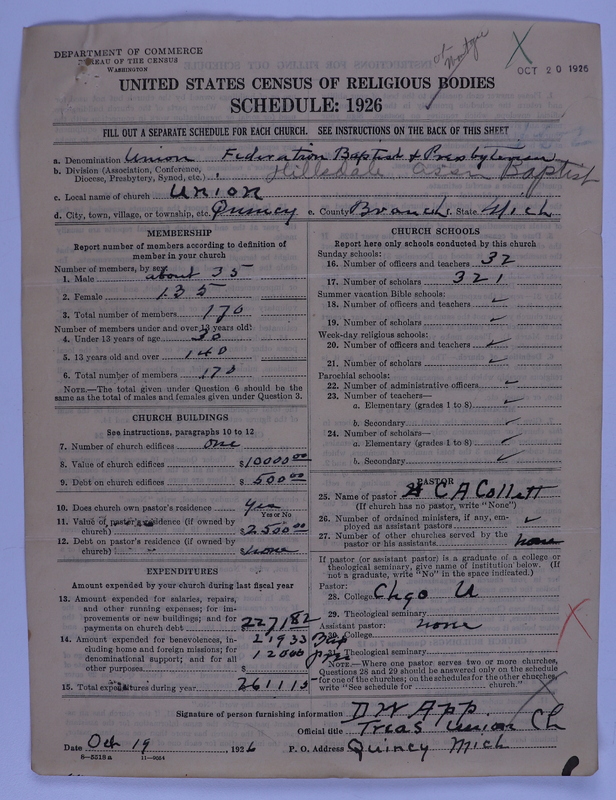 DEPARTMENT OF COMMERCE
BUREAU OF THE CENSUS
WASHINGTON
OCT 20 1926
UNITED STATES CENSUS OF RELIGIOUS BODIES
SCHEDULE: 1926
FILL OUT A SEPARATE SCHEDULE FOR EACH CHURCH. SEE INSTRUCTIONS ON THE BACK OF THIS SHEET
a. Denomination Union Federation Baptist & Presbyterian
b. Division (Association, Conference, Diocese, Presbytery, Synod, etc.) Hillsdale Assn Baptist
c. Local name of church Union
d. City, town, village, or township, etc. Quincy e. County Branch f. State Mich
MEMBERSHIP
Report number of members according to definition of
member in your church
Number of members, by sex:
1. Male about 35
2. Female 135
3. Total number of members 170
Number of members under and over 13 years old:
4. Under 13 years of age 30
5. 13 years old and over 140
6. Total number of members 170
NOTE.—The total given under Question 6 should be the
same as the total of males and females given under Question 3.
CHURCH BUILDINGS
See instructions, paragraphs 10 to 12
7. Number of church edifices one
8. Value of church edifices $10000 00
9. Debt on church edifices $500 00
10. Does church own pastor's residence Yes
Yes or No
11. Value of pastor's residence (if owned by
church) $2500 00
12. Debt on pastor's residence (if owned by
church) none
EXPENDITURES
Amount expended by your church during last fiscal year
13. Amount expended for salaries, repairs,
and other running expenses; for im-
provements or new buildings; and for
payments on church debt $2271 82
14. Amount expended for benevolences, in- 219 33 Bap
cluding home and foreign missions; for 120 00
denominational support; and for all
other purposes $
15. Total expenditures during year 2611 15
CHURCH SCHOOLS
Report here only schools conducted by this church
Sunday schools:
16. Number of officers and teachers 32
17. Number of scholars 321
Summer vacation Bible schools:
18. Number of officers and teachers ✓
19. Number of scholars ✓
Week-day religious schools:
20. Number of officers and teachers ✓
21. Number of scholars ✓
Parochial schools:
22. Number of administrative officers ✓
23. Number of teachers—
a. Elementary (grades 1 to 8) ✓
b. Secondary ✓
24. Number of scholars—
a. Elementary (grades 1 to 8) ✓
b. Secondary ✓
PASTOR
25. Name of pastor C A Collett
(If church has no pastor, write "None")
26. Number of ordained ministers, if any, em-
ployed as assistant pastors ✓
27. Number of other churches served by the
pastor or his assistants none
If pastor (or assistant pastor) is a graduate of a college or
theological seminary, give name of institution below. (If
not a graduate, write "No" in the space indicated.)
Pastor:
28. College Chgo U
29. Theological seminary
Assistant pastor: none
30. College
31. Theological seminary
NOTE.—Where one pastor serves two or more churches,
Questions 28 and 29 should be answered only on the schedule
for one of the churches; on the schedules for the other churches,
write "See schedule for church."
Signature of person furnishing information D W App
Official title Treas Union Ch
Date Oct 19, 1926 P. O. Address Quincy Mich
8—5318 a 11—9054